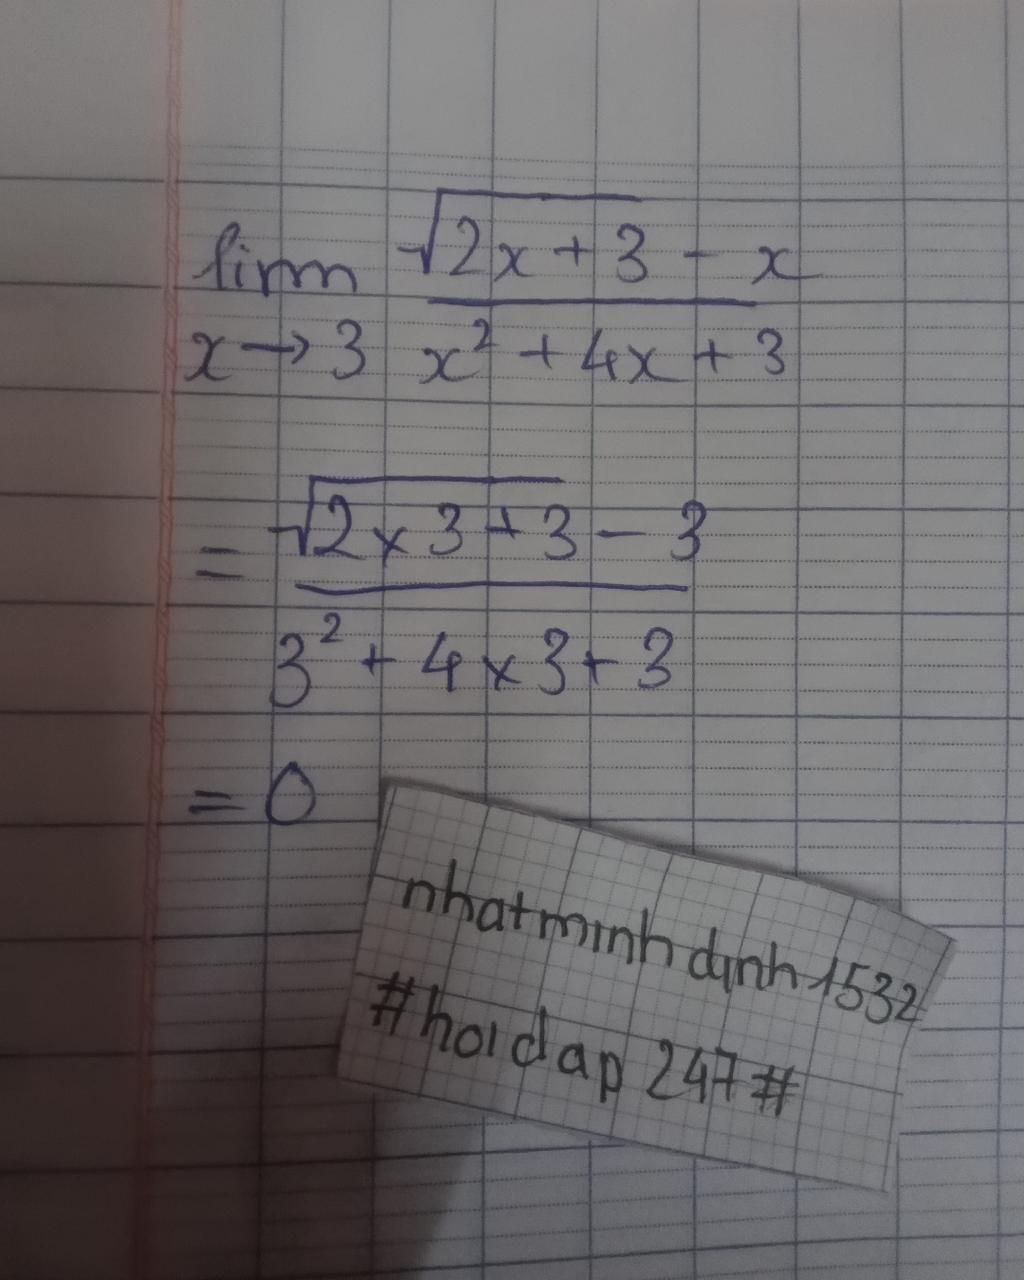 lim √2x + 3 - x
x → 3 x² + 4x + 3
= √2 x 3 + 3 - 3
3² + 4 x 3 + 3
= 0
nhatminhdinh1532
#hoidap247#